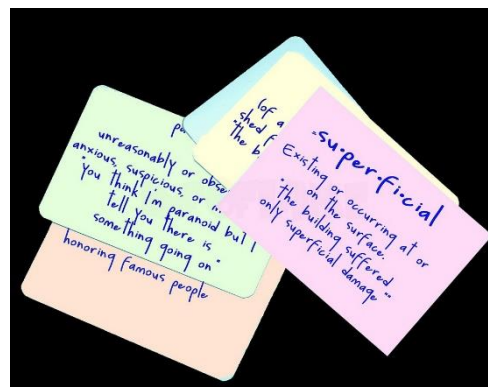 su·per·fi·cial
Existing or occurring at or
on the surface.
"the building suffered
only superficial damage"
(of a
shed f
"the b
unreasonably or obse
anxious, suspicious, or
"you think I'm paranoid but I
tell you there is
something going on"
honoring famous people